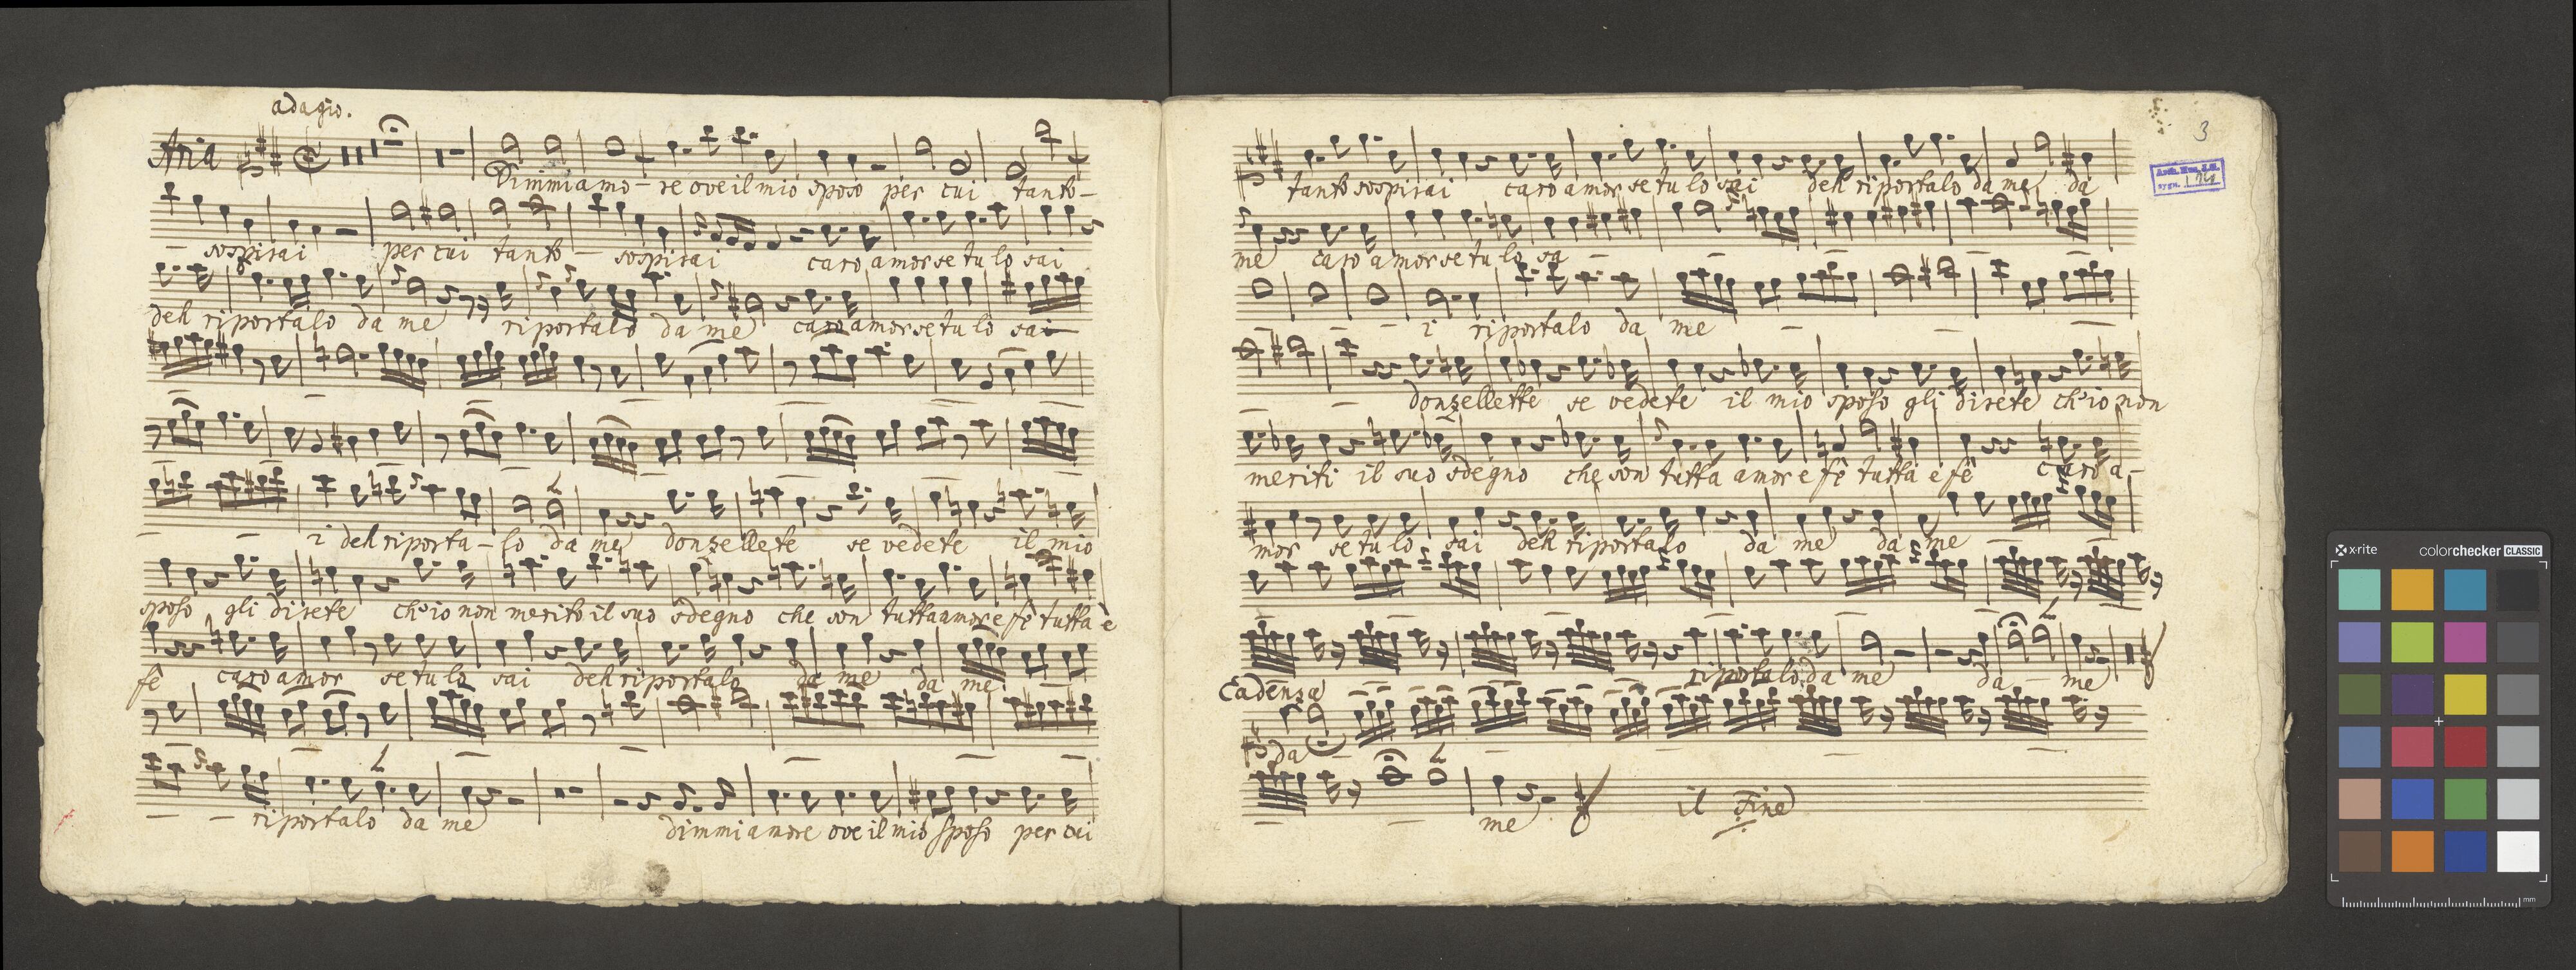 adagio.
Aria
Dimmi amo - re ove il mio sposo per cui tanto -
- sospirai per cui tanto - sospirai caro amor se tu lo sai
deh riportalo da me riportalo da me caro amor se tu lo sai
i deh riporta - lo da me donzellete se vedete il mio
sposo gli direte ch'io non merito il suo sdegno che son tutta amor e fê tutta è
fê caro amor se tu lo sai deh riportalo da me da me
riportalo da me dimmi amore ove il mio sposo per cui
3
Arch. Kuz. J.G.
sygn. I 14
tanto sospirai caro amor se tu lo sai deh riportalo da me da
me caro amor se tu lo sa -
- - i riportalo da me
donzellette se vedete il mio sposo gli direte ch'io non
meriti il suo sdegno che son tutta amor e fê tutta e fê caro a -
mor se tu lo sai deh riportalo da me da me
riportalo da me da - me
Cadenza
da
me il Fine
x-rite colorchecker CLASSIC
mm